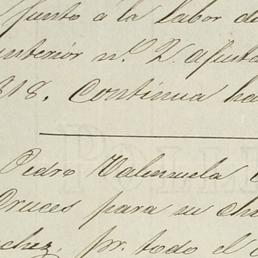 junto á la labor de
anterior nº 2. ajusta
818. Continua ha
Pedro Valenzuela
Cruces para su cho
chez, pr. todo el